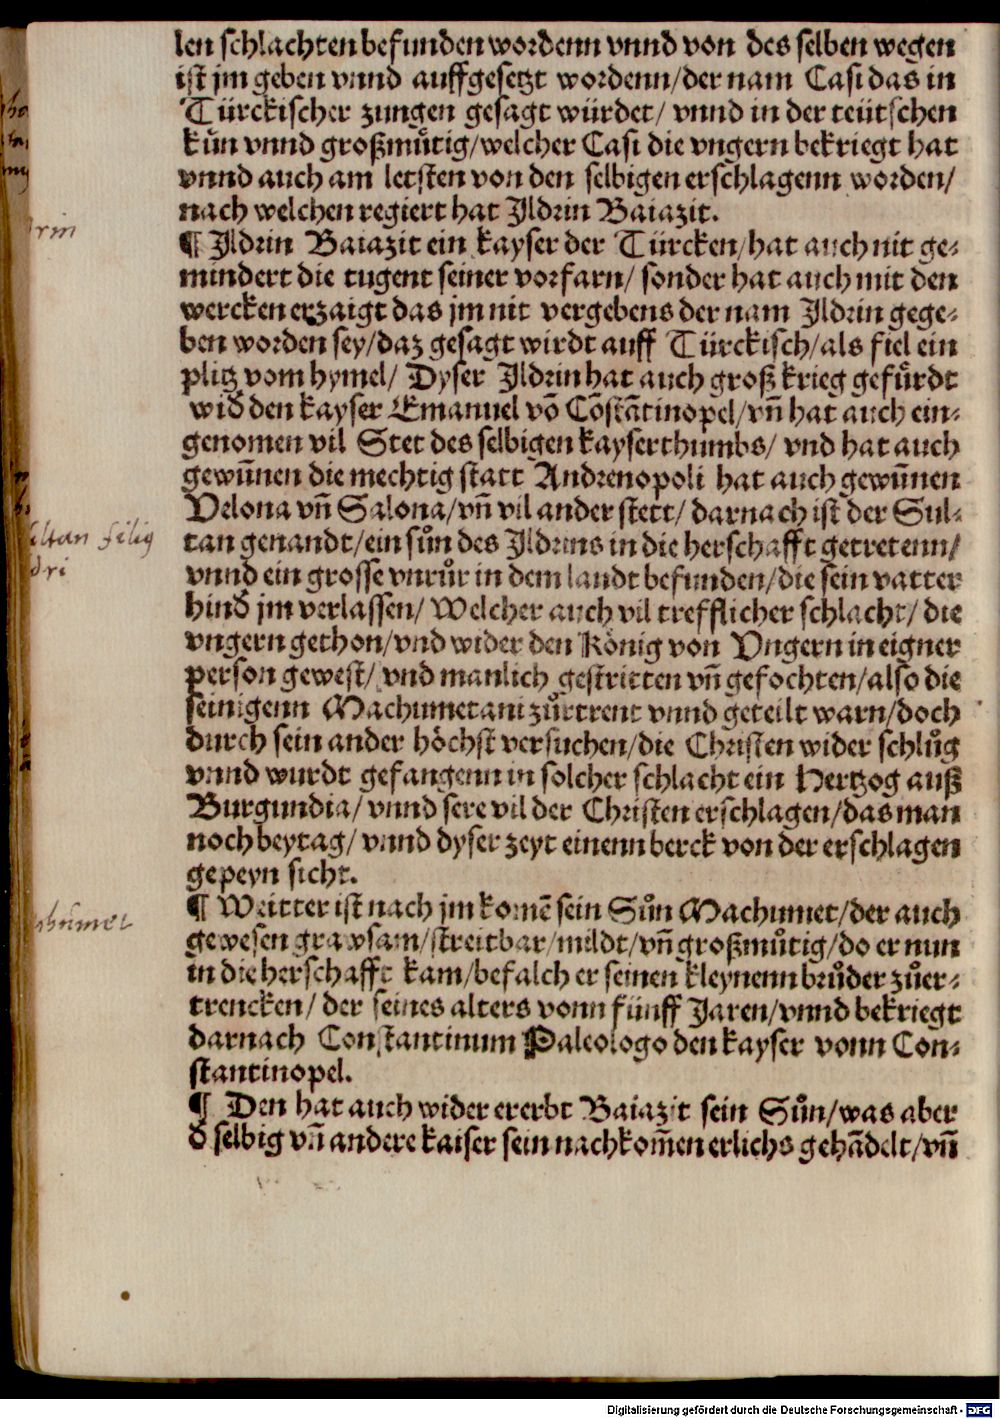 len schlachten befunden wordenn vnnd von des selben wegen
ist jm geben vnnd auffgesetzt wordenn/der nam Casi das in
Türckischer zungen gesagt würdet/ vnnd in der teütschen
kün vnnd großmůtig/welcher Casi die vngern bekriegt hat
vnnd auch am letsten von den selbigen erschlagenn worden/
nach welchen regiert hat Jldrin Baiazit.
¶ Jldrin Baiazit ein kayser der Türcken/hat auch nit ge⸗
mindert die tugent seiner vorfarn/ sonder hat auch mit den
wercken erzaigt das jm nit vergebens der nam Jldrin gege⸗
ben worden sey/daz gesagt wirdt auff Türckisch/als fiel ein
plitz vom hymel/ Dyser Jldrin hat auch groß krieg gefůrdt
wid den kayser Emanuel võ Cõstãtinopel/vñ hat auch ein⸗
genomen vil Stet des selbigen kayserthumbs/ vnd hat auch
gewũnen die mechtig statt Andrenopoli hat auch gewũnen
Velona vñ Salona/vñ vil ander stett/ darnach ist der Sul⸗
tan genandt/ein sůn des Jldrins in die herschafft getretenn/
vnnd ein grosse vnrůr in dem landt befunden/die sein vatter
hind jm verlassen/ Welcher auch vil trefflicher schlacht/ die
vngern gethon/vnd wider den König von Vngern in eigner
person gewest/ vnd manlich gestritten vñ gefochten/also die
seinigenn Machumetani zůrtrent vnnd geteilt warn/doch
durch sein ander höchst versuchen/die Christen wider schlůg
vnnd wurdt gefangenn in solcher schlacht ein Hertzog auß
Burgundia/ vnnd sere vil der Christen erschlagen/das man
noch beytag/ vnnd dyser zeyt einenn berck von der erschlagen
gepeyn sicht.
¶ Weitter ist nach jm komẽ sein Sůn Machumet/der auch
gewesen grawsam/streitbar/mildt/vñ großmůtig/do er nun
in die herschafft kam/befalch er seinen kleynenn brůder zůer⸗
trencken/ der seines alters vonn fünff Jaren/vnnd bekriegt
darnach Constantinum Paleologo den kayser vonn Con⸗
stantinopel.
¶ Den hat auch wider ererbt Baiazit sein Sůn/was aber
d selbig vñ andere kaiser sein nachkom̃en erlichs gehãdelt/vñ
filig
Digitalisierung gefördert durch die Deutsche Forschungsgemeinschaft - DFG